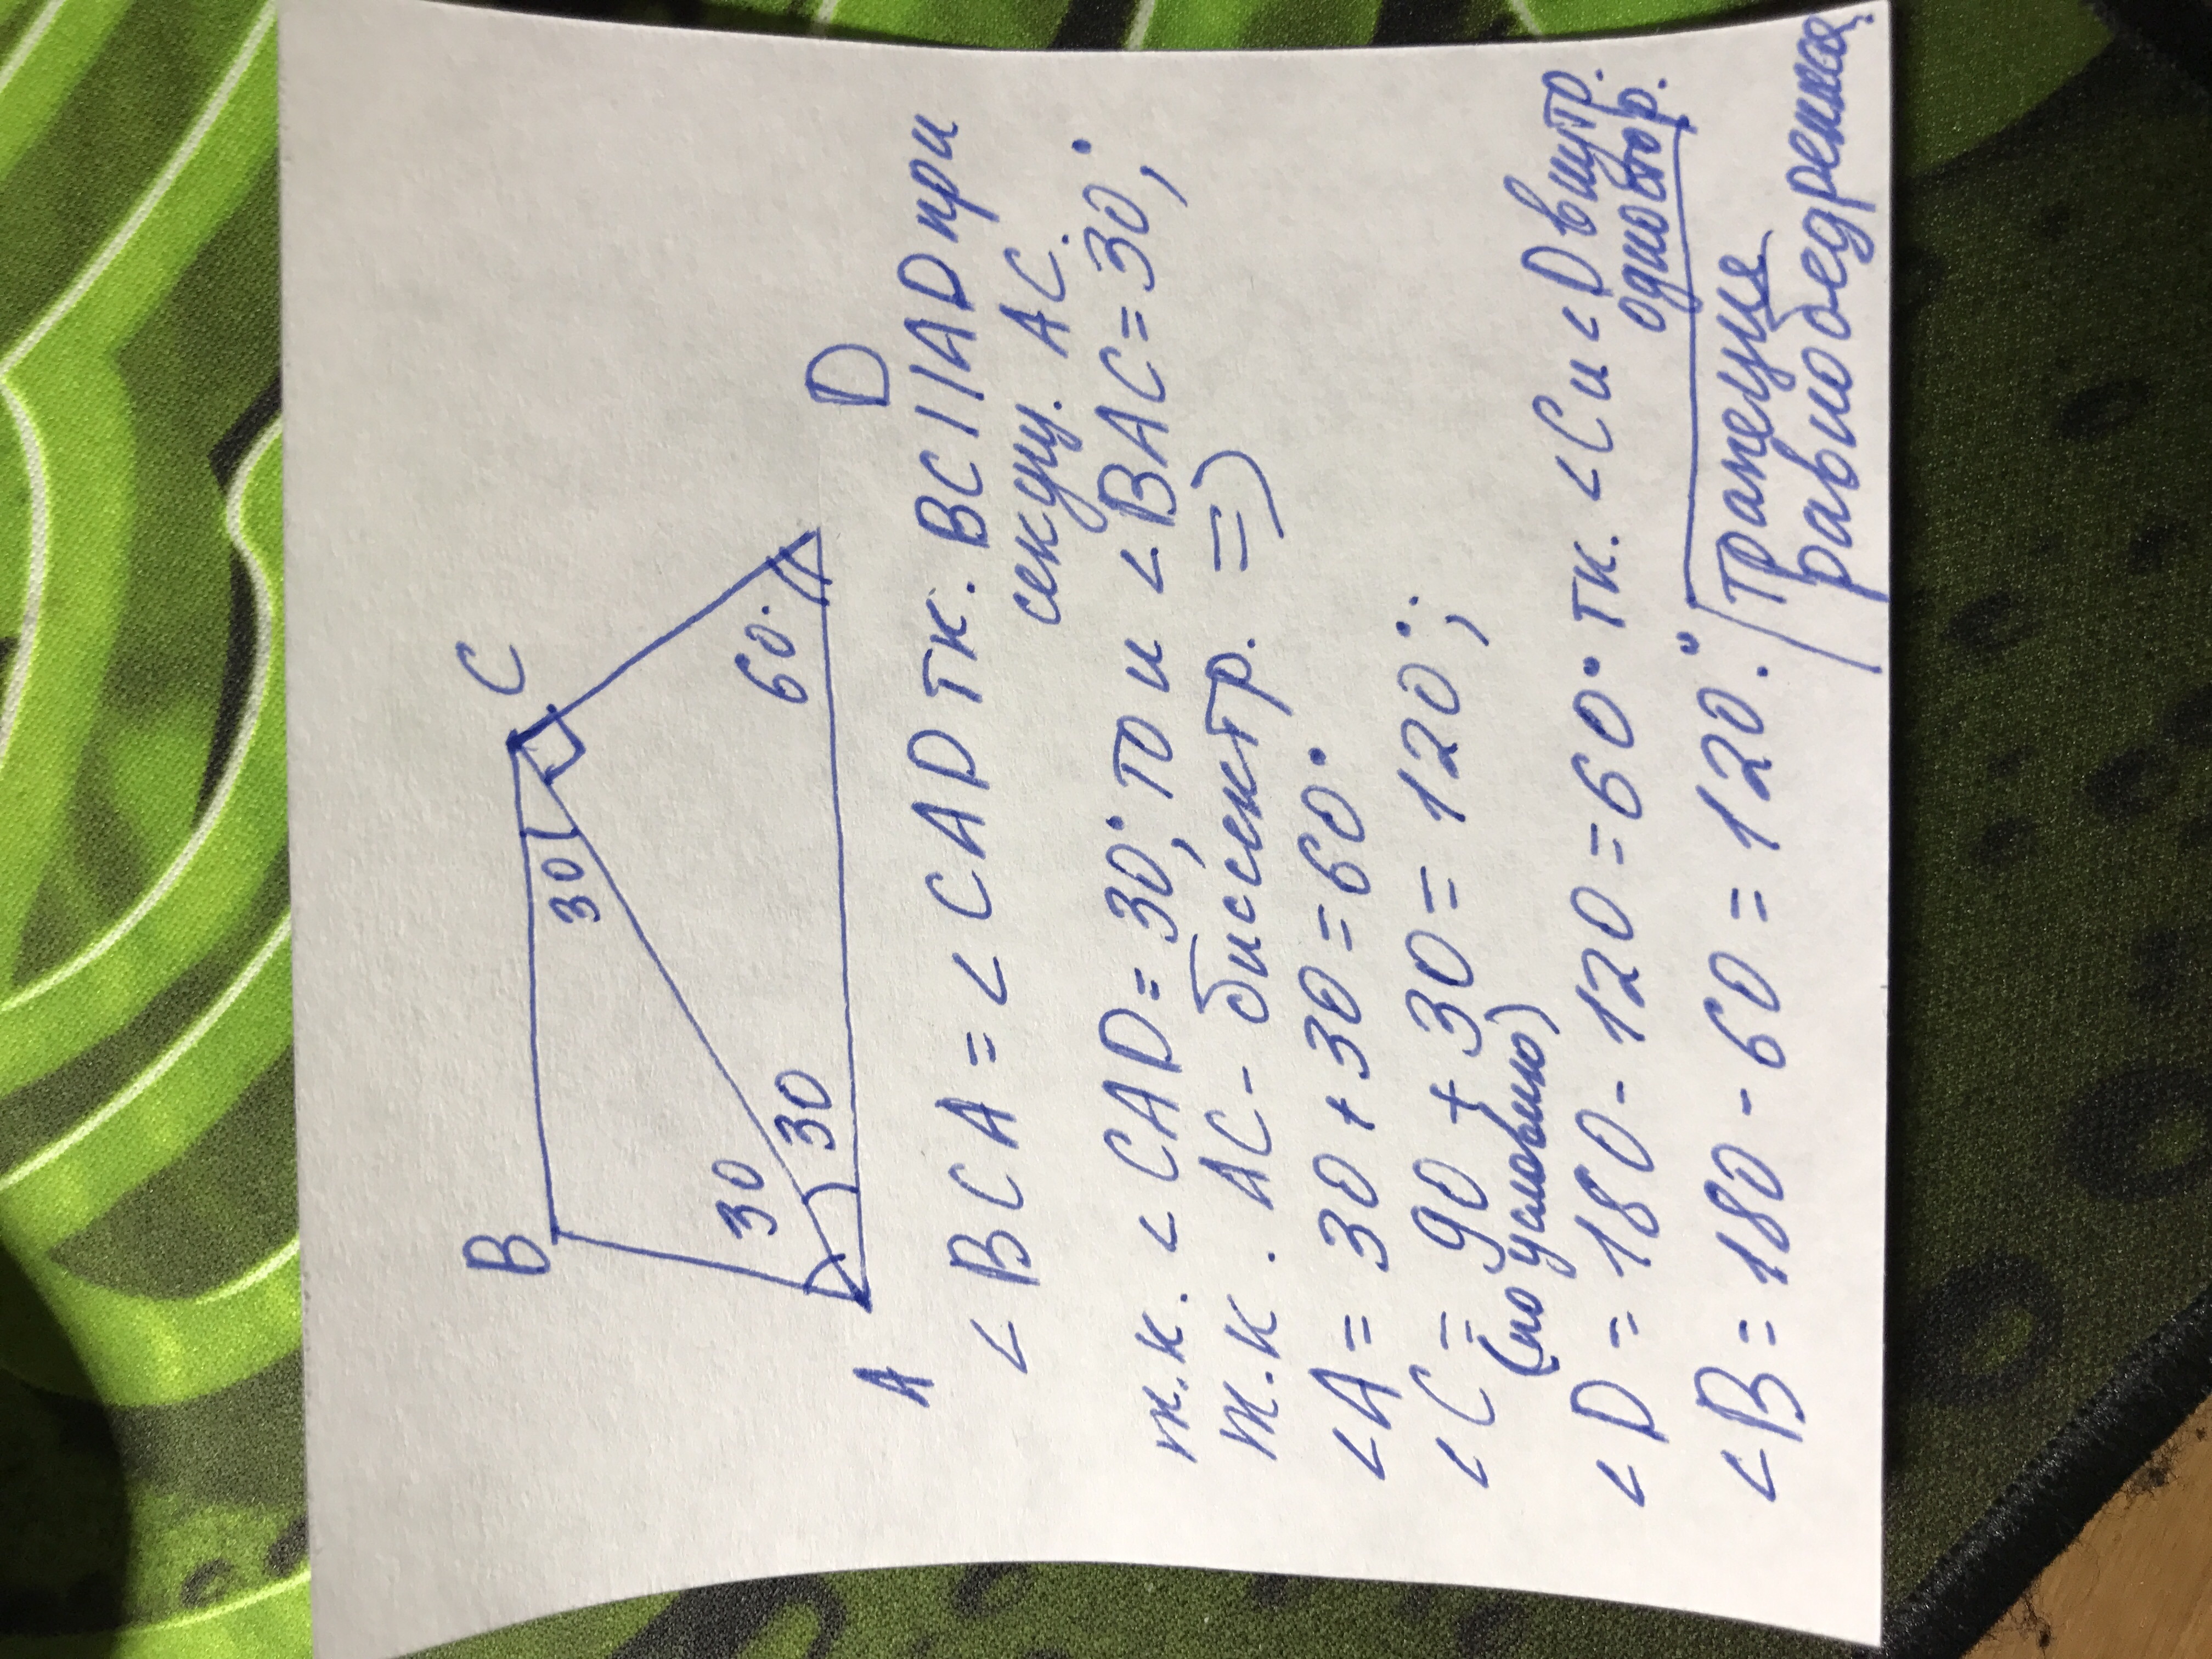 B
C
30
30
30
60°
A
D
∠BCA = ∠CAD тк. BC||AD при
секущ. AC.
т.к. ∠CAD = 30°, то и ∠BAC = 30°;
т.к. AC - биссектр. =)
∠A = 30 + 30 = 60°
∠C = 90 + 30 = 120°;
(по условию)
∠D = 180 - 120 = 60° тк. ∠C и ∠D внутр.
одностор.
∠B = 180 - 60 = 120°.
Трапеция
равнобедренная